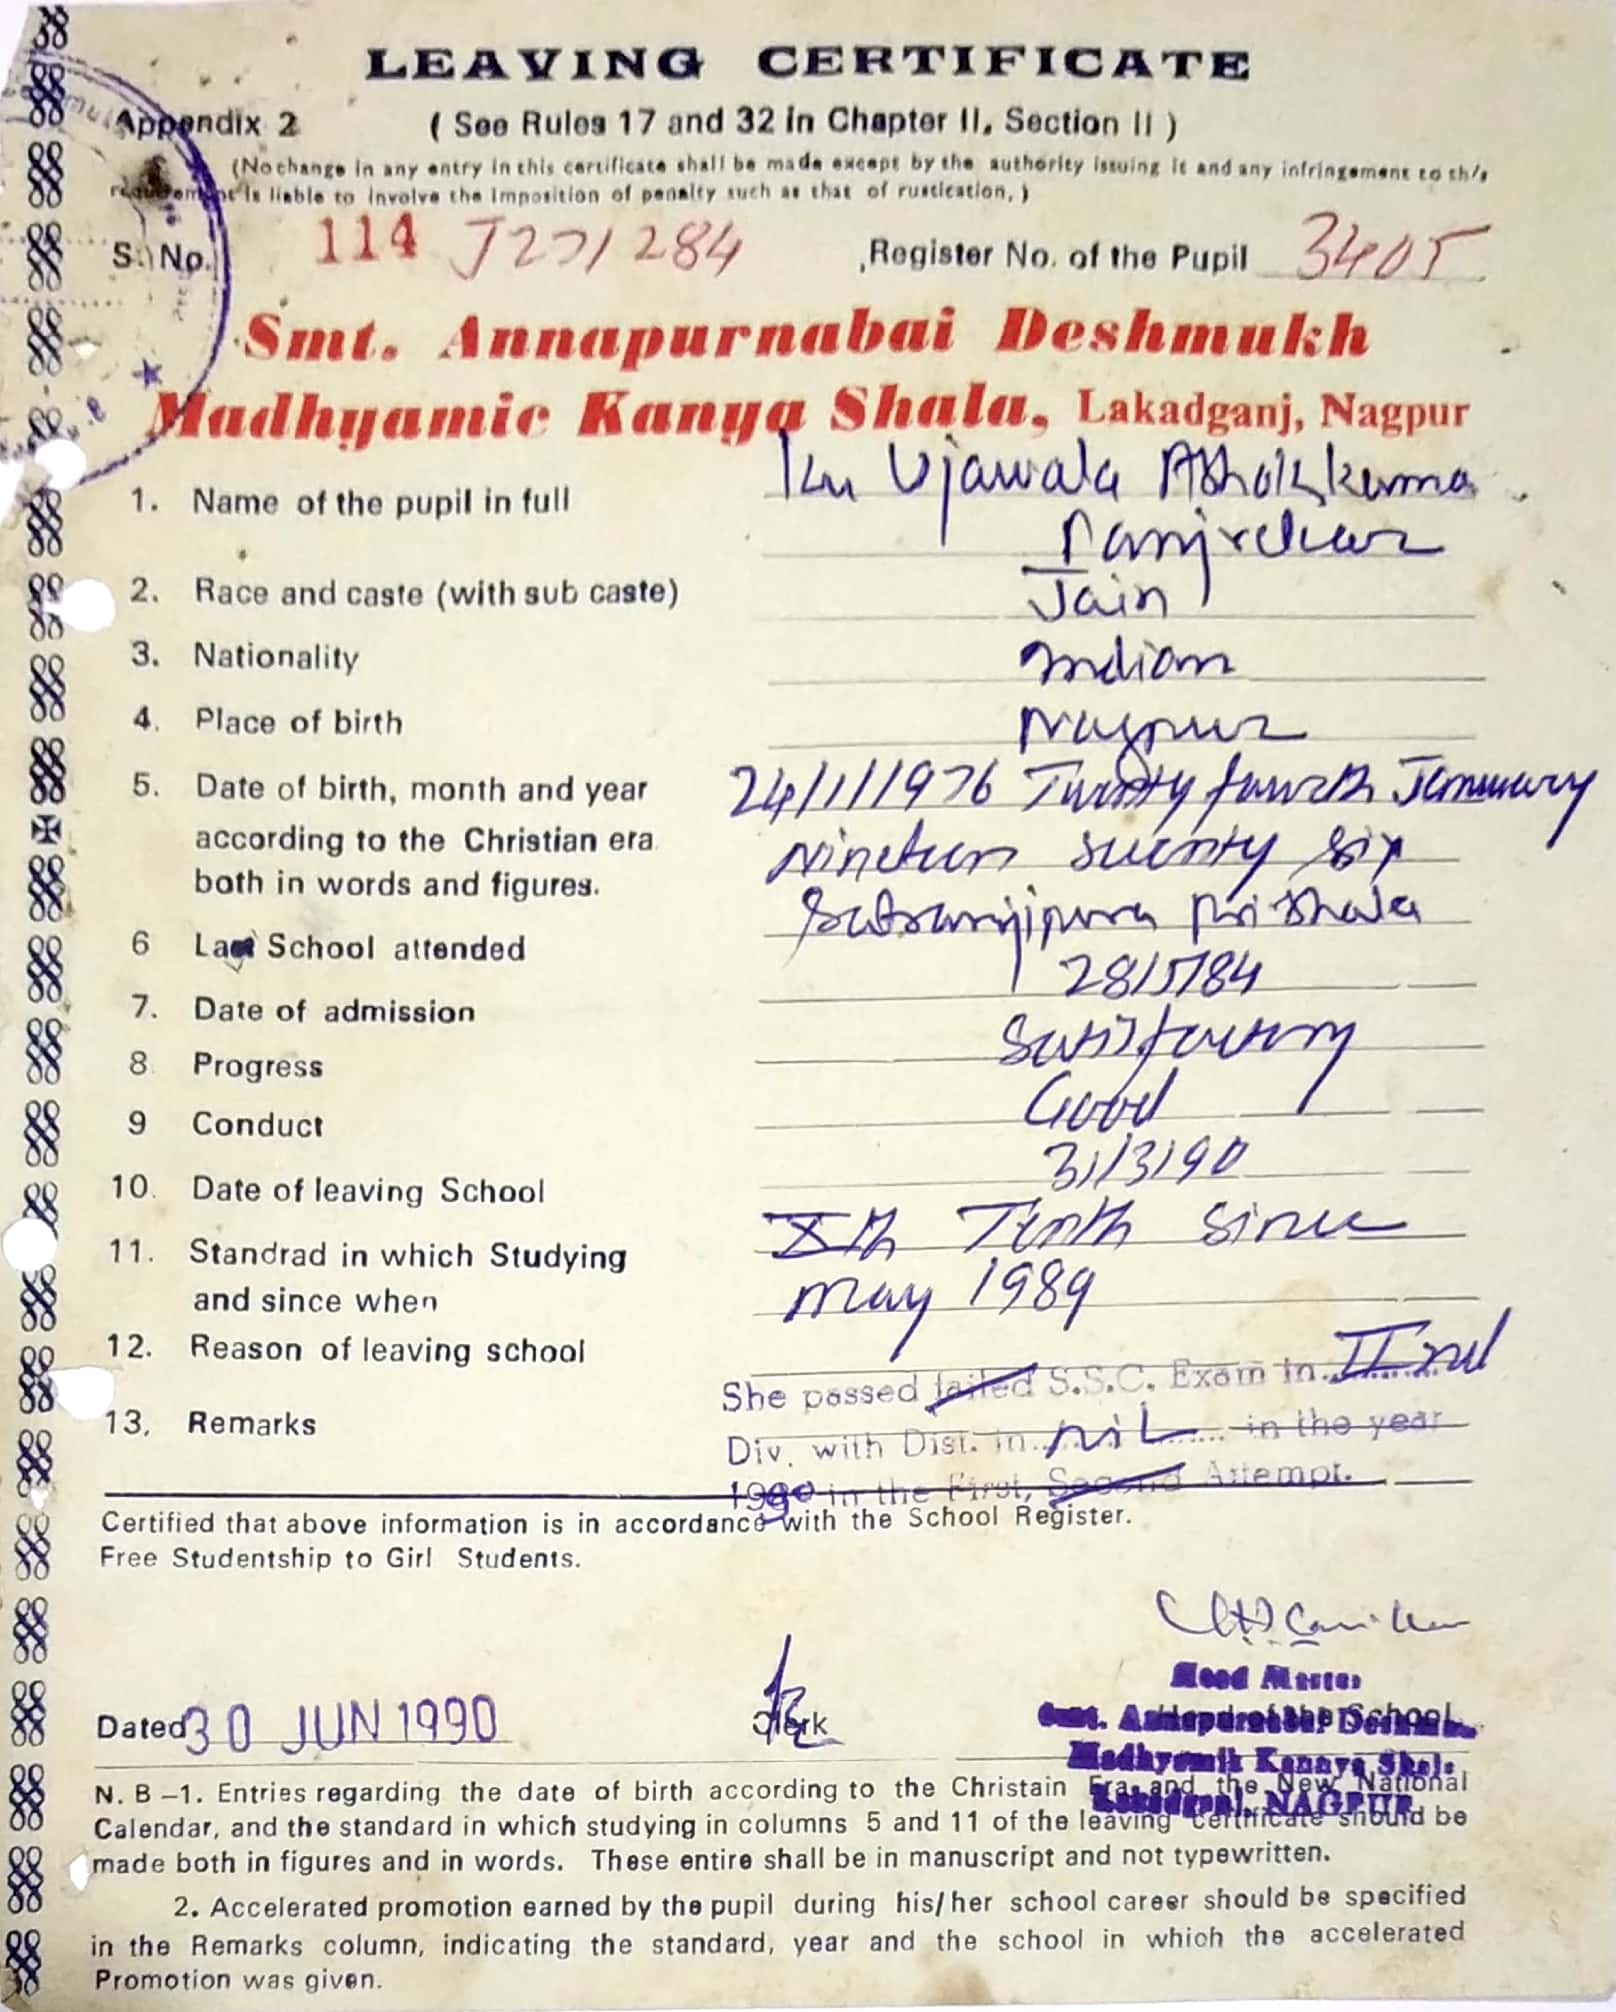 LEAVING CERTIFICATE
Appendix 2 ( See Rules 17 and 32 in Chapter II, Section II )
(No change in any entry in this certificate shall be made except by the authority issuing it and any infringement to this
requirement is liable to involve the Imposition of penalty such as that of rustication, )
S. No. 114 J271284 Register No. of the Pupil 3405
Smt. Annapurnabai Deshmukh
Madhyamic Kanya Shala, Lakadganj, Nagpur
1. Name of the pupil in full Ku Ujawala Ashokkumar
2. Race and caste (with sub caste) Jain
3. Nationality Indian
4. Place of birth Nagpur
5. Date of birth, month and year 24/1/1976 Twenty fourth January
according to the Christian era Nineteen seventy six
both in words and figures.
6 Last School attended
7. Date of admission 28/5/84
8 Progress Satisfactory
9 Conduct Good
10. Date of leaving School 31/3/90
11. Standrad in which Studying Xth Tenth since
and since when May 1989
12. Reason of leaving school
She passed failed S.S.C. Exam in IInd
13. Remarks Div. with Dist. in Nil in the year
1990 in the First, Second Attempt.
Certified that above information is in accordance with the School Register.
Free Studentship to Girl Students.
Head Master
Dated 30 JUN 1990 Clerk Head of the School
Smt. Annapurnabai
Madhyamik Kanaya Shala
Lakadganj, NAGPUR
N. B –1. Entries regarding the date of birth according to the Christain Era and the New National
Calendar, and the standard in which studying in columns 5 and 11 of the leaving certificate should be
made both in figures and in words. These entire shall be in manuscript and not typewritten.
2. Accelerated promotion earned by the pupil during his/her school career should be specified
in the Remarks column, indicating the standard, year and the school in which the accelerated
Promotion was given.